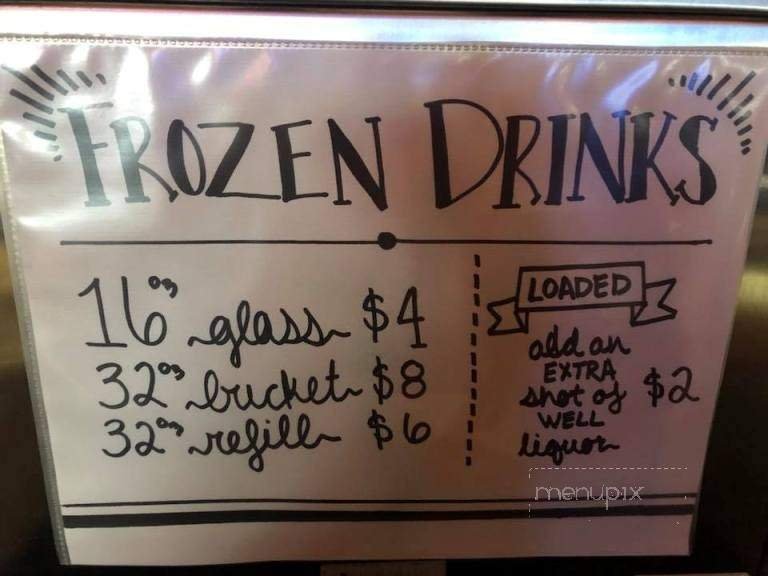 FROZEN DRINKS
16oz glass $4
32oz bucket $8
32oz refill $6
LOADED
add an
EXTRA
shot of $2
WELL
liquor
menupix